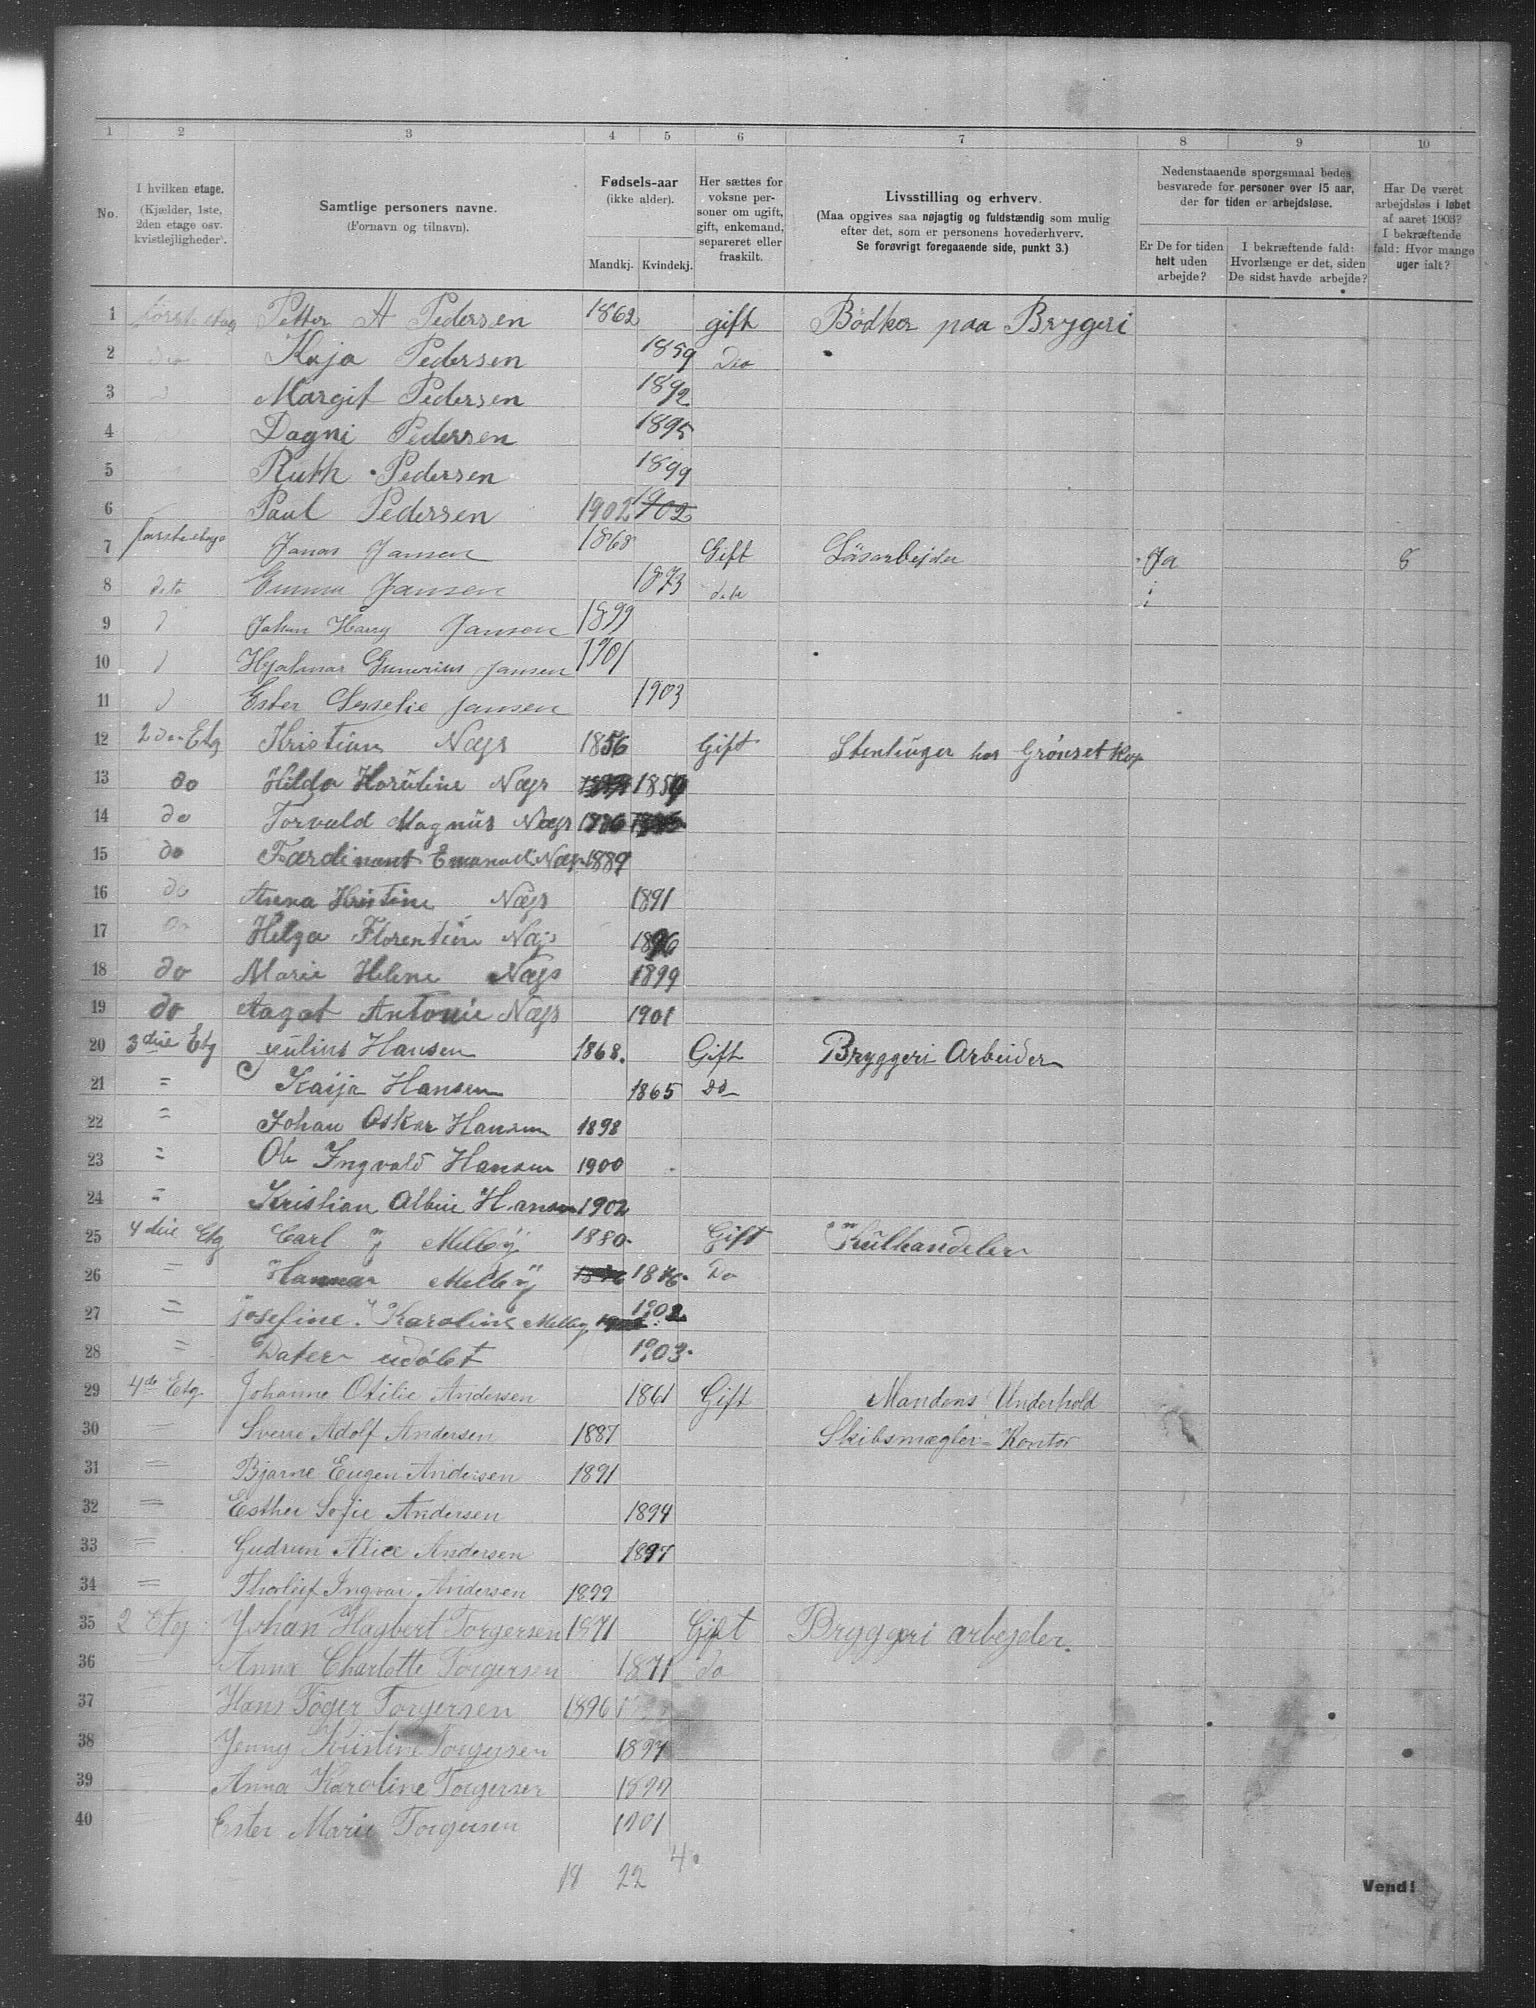 1 2 3 4 5 6 7 8 9 10
No.
I hvilken etage. (Kjælder, 1ste, 2den etage osv. kvistlejligheder).
Samtlige personers navne. (Fornavn og tilnavn).
Fødsels-aar (ikke alder). Mandkj. Kvindekj.
Her sættes for voksne personer om ugift, gift, enkemand, separeret eller fraskilt.
Livsstilling og erhverv. (Maa opgives saa nøjagtig og fuldstændig som mulig efter det, som er personens hovederhverv. Se forøvrigt foregaaende side, punkt 3.)
Nedenstaaende spørgsmaal bedes besvarede for personer over 15 aar, der for tiden er arbejdsløse.
Er De for tiden helt uden arbejde?
I bekræftende fald: Hvorlænge er det, siden De sidst havde arbejde?
Har De været arbejdsløs i løbet af aaret 1903? I bekræftende fald: Hvor mange uger ialt?
1 første etag Petter A Pedersen 1862 gift Bødker paa Brygeri
2 do Kaja Pedersen 1859 Do
3 Margit Pedersen 1892
4 Dagni Pedersen 1895
5 Ruth Pedersen 1899
6 Paul Pedersen 1902 1902
7 første etage Jonas Jansen 1868 Gift Løsarbejder Ja 8
8 deto Emma Jansen 1873 deto
9 Johan Harry Jansen 1899
10 Hjalmar Gunerius Jansen 1901
11 Ester Jansen 1903
12 2den Etg Kristian Næss 1856 Gift Stenhuger hos Grönset
13 do Hilda Næss 1859
14 do Torvald Magnus Næss 1886
15 do Færdinant Emanuel Næss 1889
16 do Anna Kristine Næss 1891
17 do Helga Florentine Næss 1896
18 do Marie Helene Næss 1899
19 do Aagot Antonie Næss 1901
20 3die Etg Julius Hansen 1868. Gift Bryggeri Arbeider
21 = Kaija Hansen 1865 Do
22 = Johan Oskar Hansen 1898
23 = Ole Ingvald Hansen 1900
24 = Kristian Albin Hansen 1902
25 4die Etg Carl J Melby 1880. Gift Kulhandeler
26 = Hanna Melby 1876. Do
27 = Josefine Karoline Melby 1902
28 = Dater udøbt 1903.
29 4de Etg. Johanne Otilie Andersen 1861 Gift Mandens Underhold
30 = Sverre Adolf Andersen 1887 Skibsmægler-Kontor
31 = Bjarne Eugen Andersen 1891
32 = Esther Sofie Andersen 1894
33 = Gudrun Alice Andersen 1897
34 = Thorleif Ingvar Andersen 1899
35 2 Etg Johan Hagbert Torgersen 1871 Gift Bryggeri arbejder.
36 Anna Charlotte Torgersen 1871 do
37 Hans Roger Torgersen 1896
38 Jenny Kristine Torgersen 1897
39 Anna Karoline Torgersen
40 Ester Marie Torgersen 1901
18 22 4.
Vend!